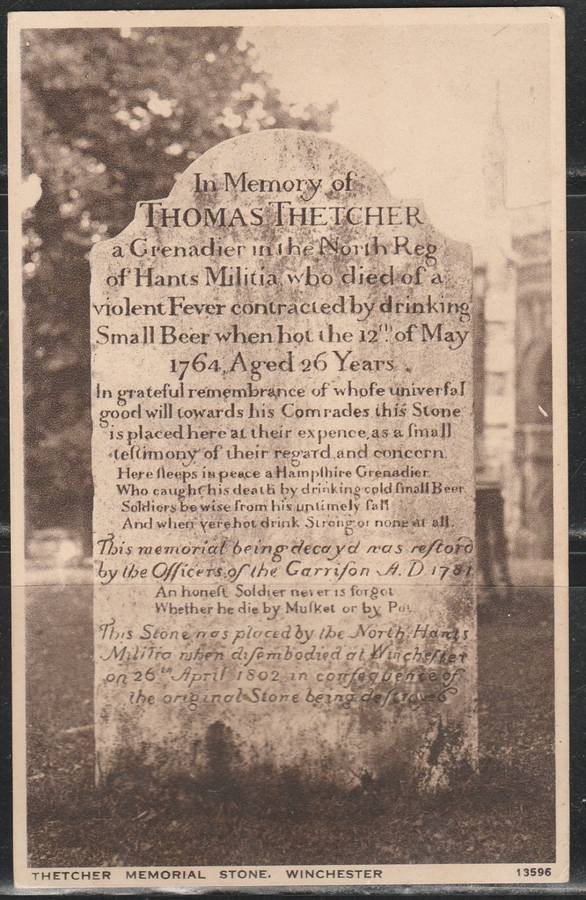 In Memory of
THOMAS THETCHER
a Grenadier in the North Reg
of Hants Militia, who died of a
violent Fever contracted by drinking
Small Beer when hot the 12th. of May
1764, Aged 26 Years.
In grateful remembrance of whoſe univerſal
good will towards his Comrades this Stone
is placed here at their expence, as a ſmall
teſtimony of their regard and concern.
Here ſleeps in peace a Hampſhire Grenadier.
Who caught his death by drinking cold ſmall Beer.
Soldiers be wise from his untimely fall
And when yere hot drink Strong or none at all.
This memorial being decay'd was reſtor'd
by the Officers of the Garriſon A.D. 1781
An honeſt Soldier never is forgot
Whether he die by Muſket or by Pot
This Stone was placed by the North Hants
Militia when diſembodied at Wincheſter
on 26th April 1802, in conſequence of
the original Stone being deſtroyed
THETCHER MEMORIAL STONE. WINCHESTER 13596